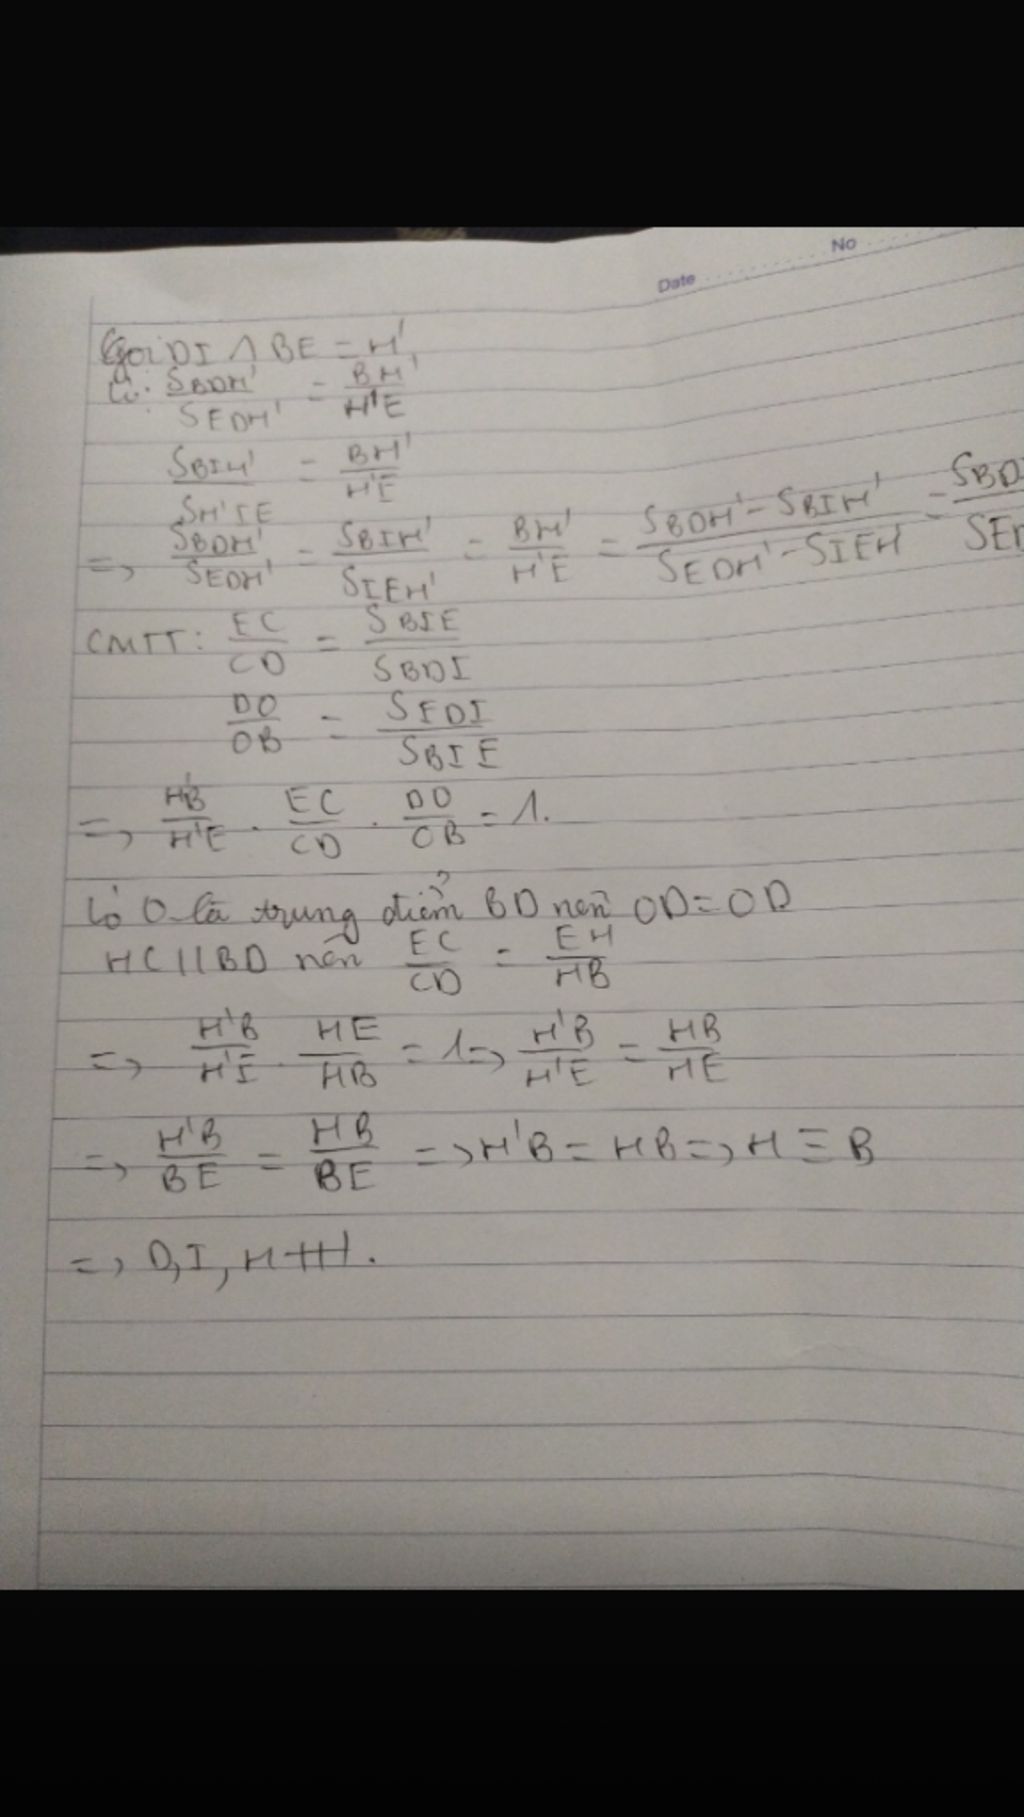 No
Date
Gọi DI ∩ BE = H'
Có: S_BDH' / S_EDH' = BH' / H'E
S_BIH' / S_H'IE = BH' / H'E
=> S_BDH' / S_EDH' = S_BIH' / S_IEH' = BH' / H'E = (S_BDH' - S_BIH') / (S_EDH' - S_IEH) =
CMTT: EC / CD = S_BIE / S_BDI
DO / OB = S_EDI / S_BIE
=> H'B / H'E . EC / CD . DO / OB = 1.
Có O là trung điểm BD nên OD = OD
HC // BD nên EC / CD = EH / HB
=> H'B / H'I . HE / HB = 1 => H'B / H'E = HB / HE
=> H'B / BE = HB / BE => H'B = HB => H ≡ B
=> D, I, H